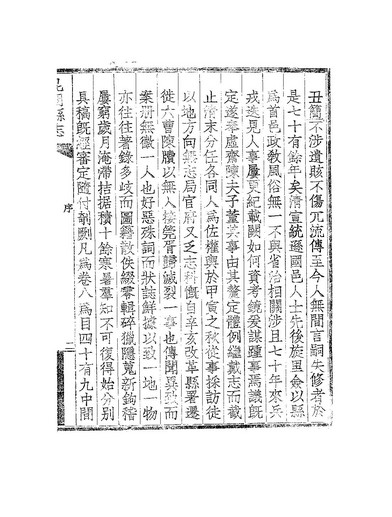 丑簡不涉遺賅不傷冗流傳至今人無間言嗣失修者於
是七十有餘年矣清宣統遜國邑人士先後旋里僉以縣
為首邑政教風俗無一不與省治相關涉且七十年來兵
戎迭見人事屢更紀載闕如何資考鏡爰謀踵事焉議既
定遂奉虛齋陳夫子董其事由其釐定體例繼戴志而截
止清末分任各同人為佐權輿於甲寅之秋從事採訪徒
以地方向無志局官府又乏志科慨自辛亥改革縣署遷
徙六曹陳牘以無人接筦胥歸滅裂一事也傳聞異致而
案册無徵一人也好惡殊詞而狀誌鮮據以致一地一物
亦往往著錄多歧而圖籍散佚綴零輯碎獵隱蒐新鉤稽
屢窮歲月淹滯拮据積十餘寒暑羣知不可復得始分別
具稿既經審定隨付剞劂凡為卷八為目四十有九中間
縣志
序
二